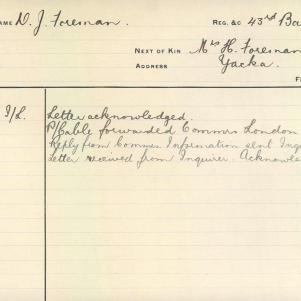 NAME N. J. Foreman. REG. &C 43rd Ba
NEXT OF KIN Mrs H. Foreman
ADDRESS Yacka.
I/L. Letter acknowledged.
P/Cable forwarded Commrs London
Reply from Commrs Information sent Inq
Letter received from Inquirer. Acknowle